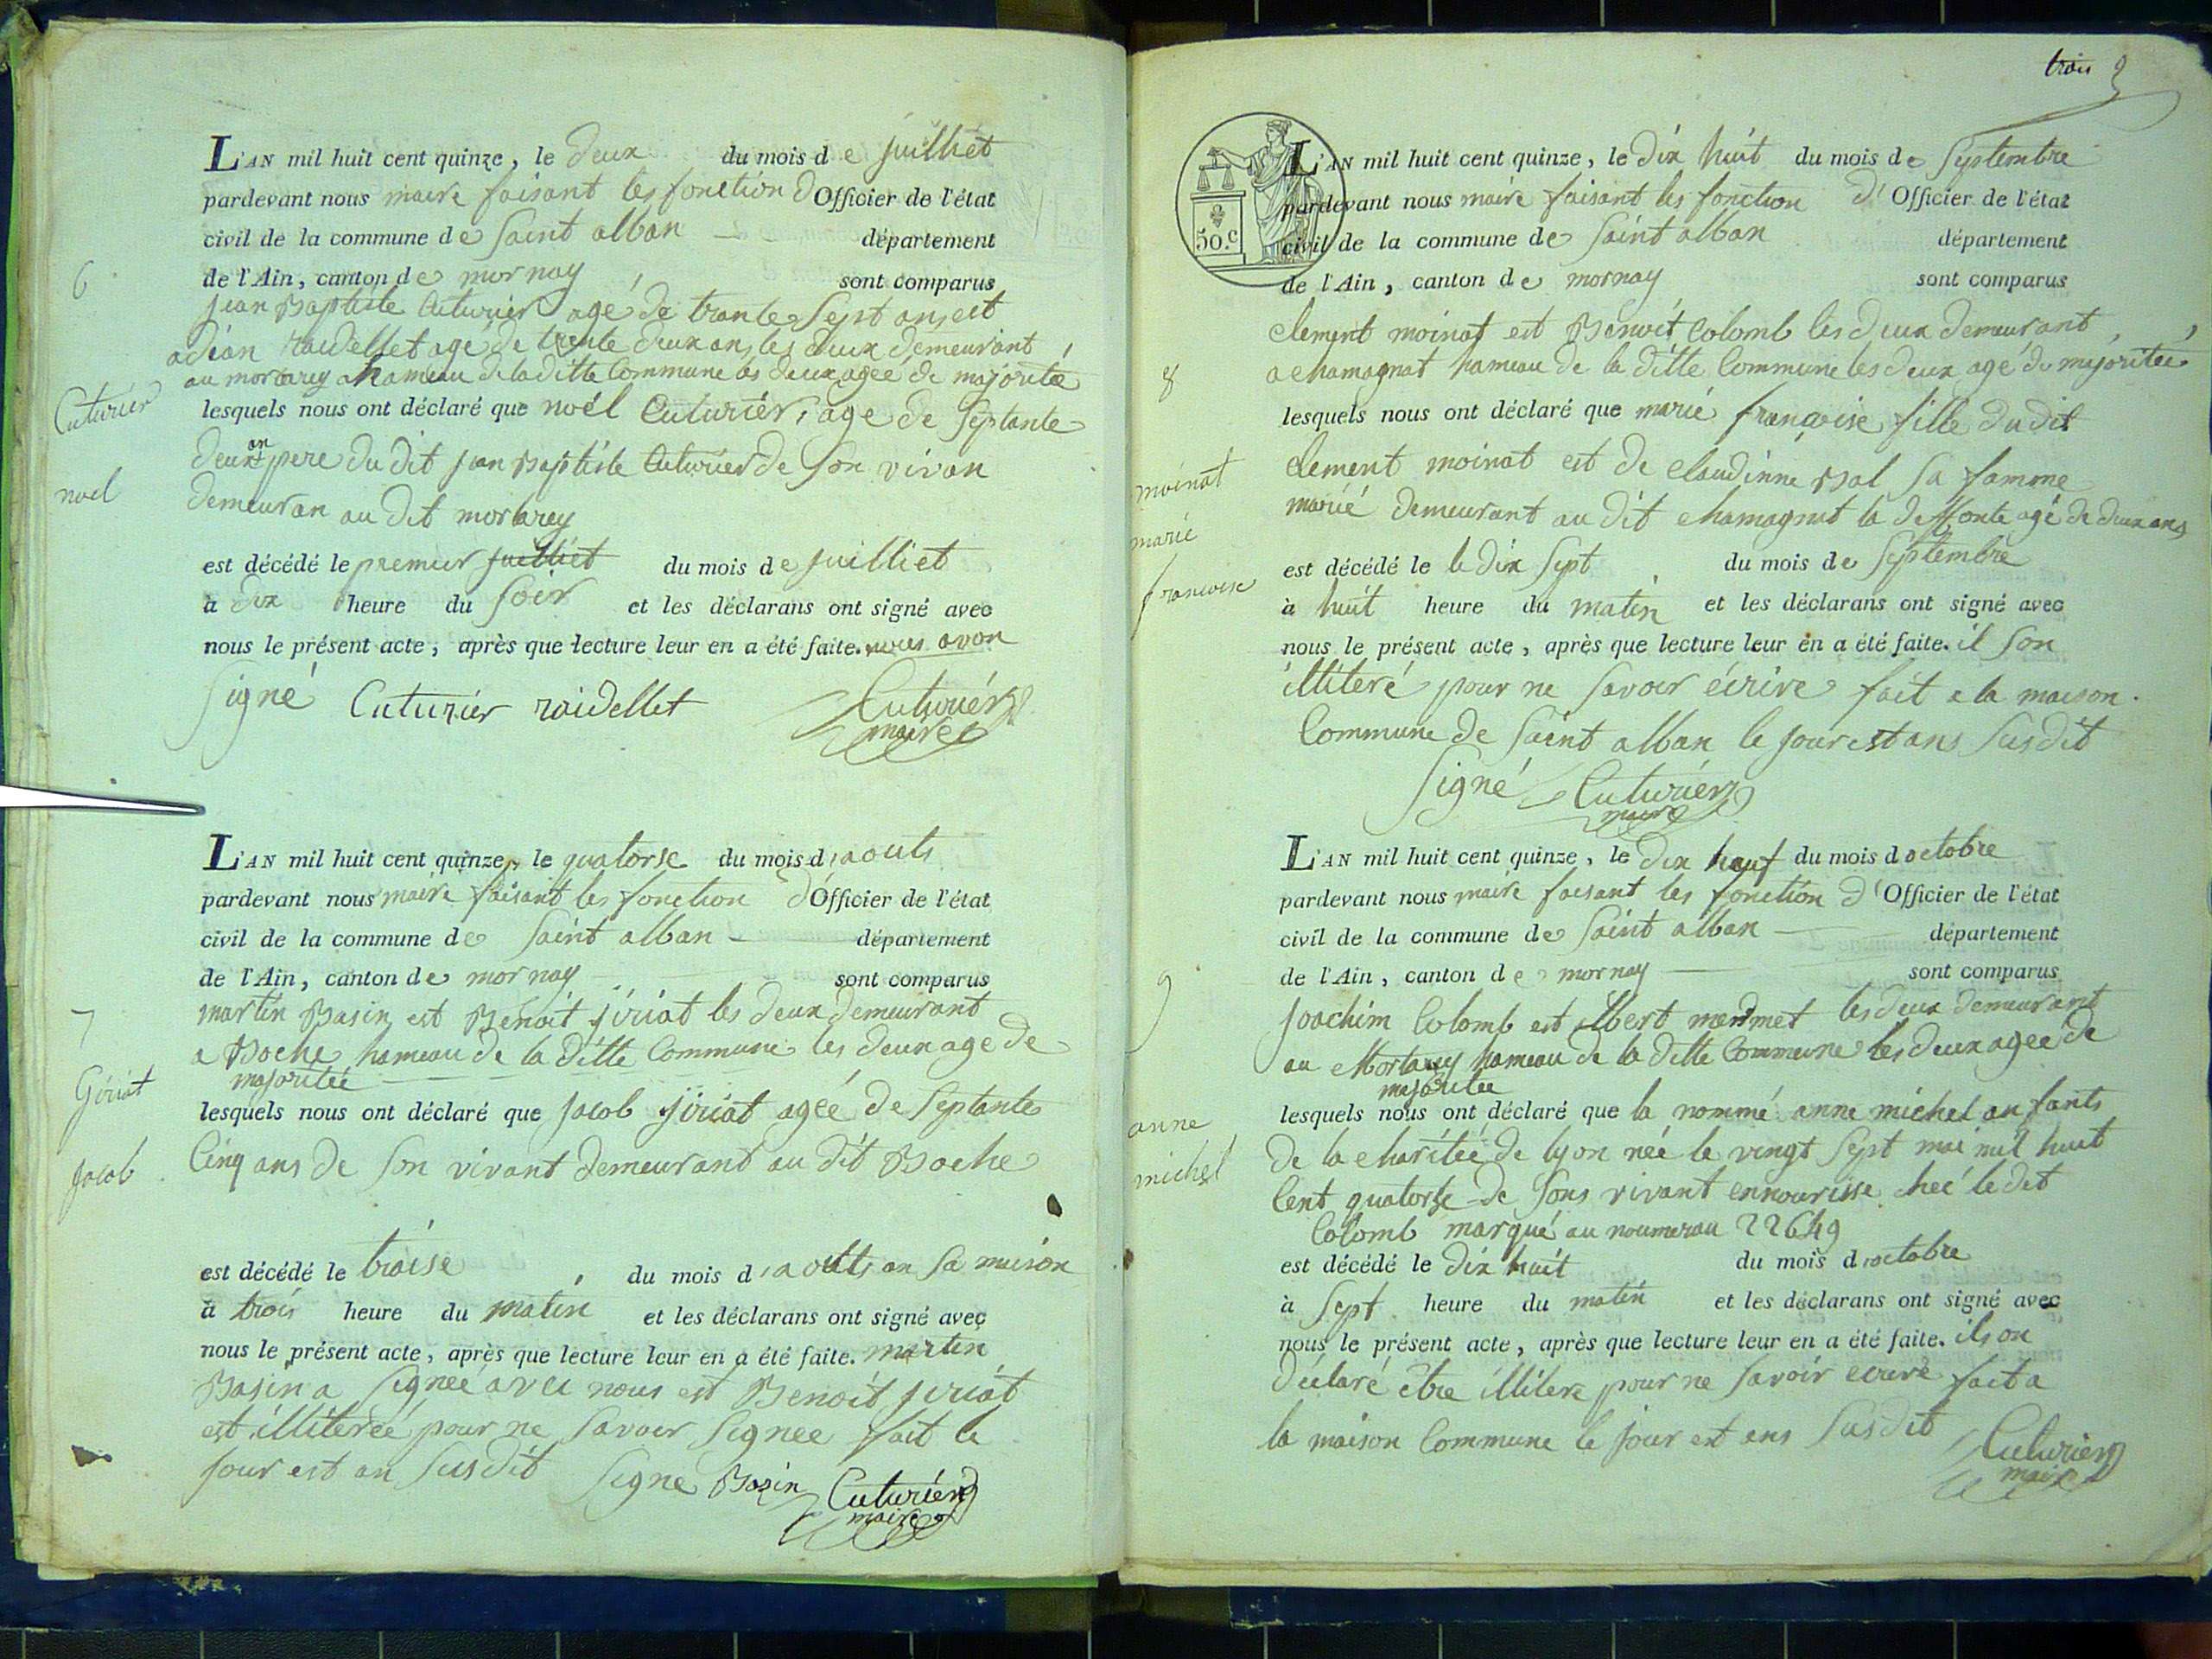 6
Cuturier
noel
L'AN mil huit cent quinze, le deux du mois de juilliet
pardevant nous maire faisant les fonction d Officier de l'état
civil de la commune de Saint alban département
de l'Ain, canton de mornay sont comparus
jean Baptiste Cuturier agé de trante Sept ans, est
raidellet agé de trente deux ans, les deux demeurant
au mortarey hameau de la ditte Commune les deux agee de majoritée
lesquels nous ont déclaré que noèl Cuturiér, age de Septante
deux an pere du dit jean Baptiste Cuturier de Son vivan
demeuran au dit mortarey
est décédé le premier juilliet du mois de juilliet
à dix heure du Soir et les déclarans ont signé avec
nous le présent acte, après que lecture leur en a été faite. nous avon
Signé Cuturier raidellet Cuturiér
maire
7
Gériat
jacob
L'AN mil huit cent quinze, le quatorse du mois d'aouts
pardevant nous maire faisant les fonction d'Officier de l'état
civil de la commune de Saint alban département
de l'Ain, canton de mornay sont comparus
martin Basin est Benoit jiriat les deux demeurant
a Boche hameau de la ditte Commune les deux age de
majoritée
lesquels nous ont déclaré que jacob jiriat agée de Septante
Cinq ans de Son vivant demeurant au dit Boche
est décédé le troise du mois d'aoutts an Sa maison
à trois heure du matin et les déclarans ont signé avec
nous le présent acte, après que lecture leur en a été faite. martin
Basin a Signeé avec nous est Benoit jiriat
est illitereé pour ne Savoir Signee fait le
jour est an Susdit Signe Bazin Cuturiér
maire
trois 3
50.c
8
moinat
marie
francoise
L'AN mil huit cent quinze, le dix huit du mois de Septembre
pardevant nous maire faisant les fonction d'Officier de l'état
civil de la commune de Saint alban département
de l'Ain, canton de mornay sont comparus
clement moinat est Benoit Colomb les deux demeurant
a chamagnat hameau de la ditte Commune les deux agé de majoritée
lesquels nous ont déclaré que marié françoise fille du dit
clement moinat est de claudinne Bal Sa famme
marié demeurant au dit chamagnat la deffonte agé de deux ans
est décédé le le dix Sept du mois de Septembre
à huit heure du matin et les déclarans ont signé avec
nous le présent acte, après que lecture leur en a été faite. il Son
illiteré pour ne Savoir écrire fait a la maison
Commune de Saint alban le jour est ans Susdit
Signé Cuturiér
maire
9
anne
michel
L'AN mil huit cent quinze, le dix neuf du mois d octobre
pardevant nous maire faisant les fonction d'Officier de l'état
civil de la commune de Saint alban département
de l'Ain, canton de mornay sont comparus
joachim Colomb est albert mermet les deux demeurant
au Mortarey hameau de la ditte Commune les deux ageé de
majoritee
lesquels nous ont déclaré que la nommé anne michel an fants
de la charitée de lyon neé le vingt Sept mai mil huit
Cent quatorse de Sons vivant ennourisse cheé le dit
Colomb marqué au noumerau 22649
est décédé le dix huit du mois d'octobre
à Sept heure du matin et les déclarans ont signé avec
nous le présent acte, après que lecture leur en a été faite. ils on
déclaré être illitere pour ne Savoir ecrire fait a
la maison Commune le jour est ans Susdit Cuturier
maire